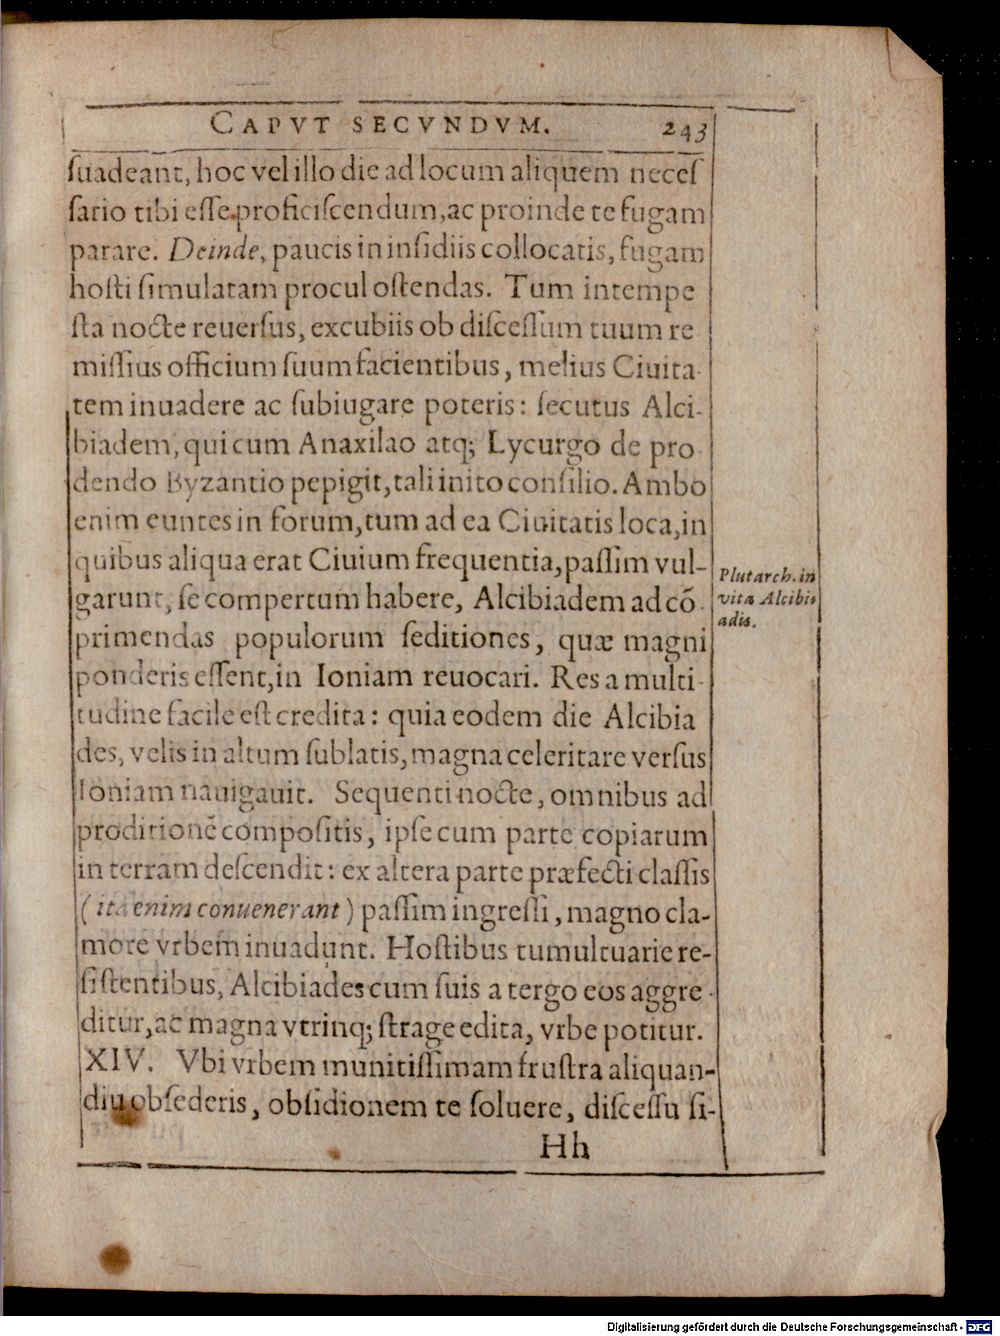 CAPVT SECVNDVM. 243
ſuadeant, hoc vel illo die ad locum aliquem neceſ
ſario tibi eſſe proficiſcendum, ac proinde te fugam
parare. Deinde, paucis in inſidiis collocatis, fugam
hoſti ſimulatam procul oſtendas. Tum intempe
ſta nocte reuerſus, excubiis ob diſceſſum tuum re
miſſius officium ſuum facientibus, melius Ciuita-
tem inuadere ac ſubiugare poteris: ſecutus Alci-
biadem, qui cum Anaxilao atq; Lycurgo de pro
dendo Byzantio pepigit, tali inito conſilio. Ambo
enim euntes in forum, tum ad ea Ciuitatis loca, in
quibus aliqua erat Ciuium frequentia, paſſim vul-
garunt, ſe compertum habere, Alcibiadem ad cō-
primendas populorum ſeditiones, quæ magni
ponderis eſſent, in Ioniam reuocari. Res a multi-
tudine facile eſt credita: quia eodem die Alcibia
des, velis in altum ſublatis, magna celeritate verſus
Ioniam nauigauit. Sequenti nocte, omnibus ad
proditionē compoſitis, ipſe cum parte copiarum
in terram deſcendit: ex altera parte præfecti claſſis
(ita enim conuenerant) paſſim ingreſſi, magno cla-
more vrbem inuadunt. Hoſtibus tumultuarie re-
ſiſtentibus, Alcibiades cum ſuis a tergo eos aggre-
ditur, ac magna vtrinq; ſtrage edita, vrbe potitur.
XIV. Vbi vrbem munitiſſimam fruſtra aliquan-
diu obſederis, obſidionem te ſoluere, diſceſſu ſi-
Hh
Plutarch. in
vita Alcibi
adis.
Digitalisierung gefördert durch die Deutsche Forschungsgemeinschaft - DFG